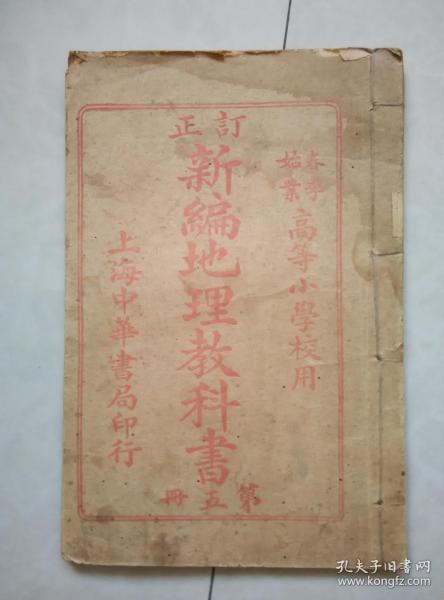 訂正
春季始業
高等小學校用
新編地理教科書
第五冊
上海中華書局印行
孔夫子旧书网
www.kongfz.com